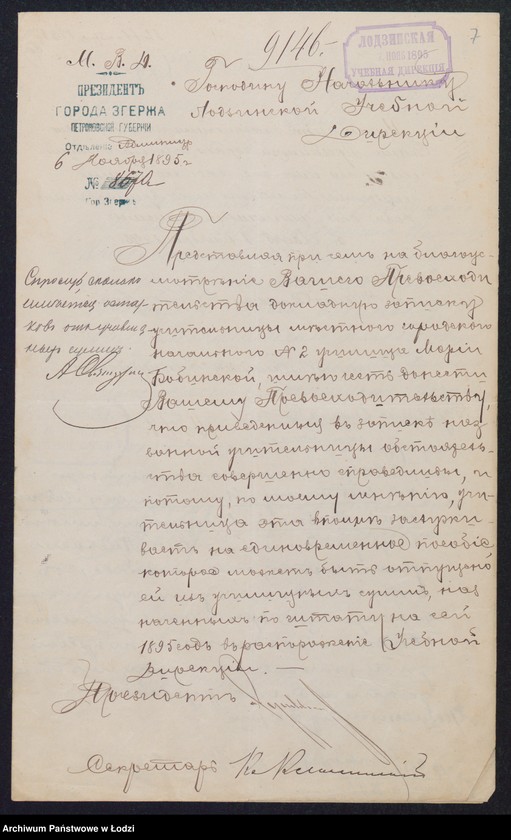 9146.-
7
ЛОДЗИНСКАЯ
1895
УЧЕБНАЯ ДИРЕКЦІЯ
М. В. Д.
ПРЕЗИДЕНТЪ
ГОРОДА ЗГЕРЖА
ПЕТРОКОВСКОЙ ГУБЕРНІИ
Отдѣленіе
6 Ноября 1895 г
№
Гор. Згержъ
Господину Начальнику
Лодзинской Учебной
Дирекціи
Представляя при семъ на благоус-
мотрѣніе Вашего Превосходи
тельства докладную записку
учительницы мѣстного городского
начального № 2 училища Маріи
Бобинской, имѣю честь донести
Вашему Превосходительству,
что приведенныя въ запискѣ наз
ванной учительницы обстоятель-
ства совершенно справедливы, и
потому, по моему мнѣнію, учи-
тельница эта вполнѣ заслужи-
ваетъ на единовременное пособіе
которое можетъ быть отпущено
ей изъ училищныхъ суммъ, наз
наченныхъ по штату на сей
1895 годъ въ распоряженіе Учебной
Дирекціи. —
Президентъ
Секретарь
Archiwum Państwowe w Łodzi